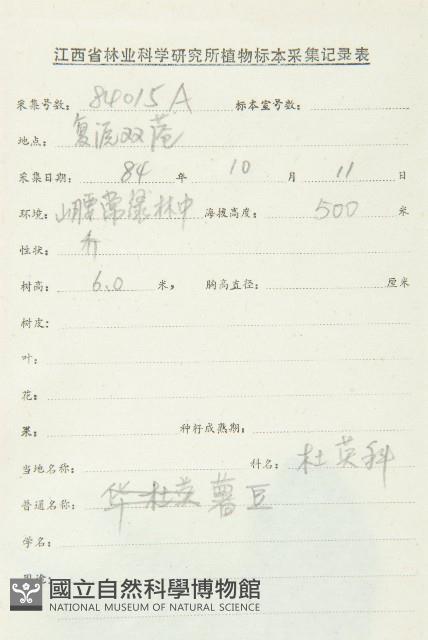 江西省林业科学研究所植物标本采集记录表
采集号数: 84015A 标本室号数:
地点: 复沅双蓭
采集日期: 84 年 10 月 11 日
环境: 山腰常绿林中 海拔高度: 500 米
性状: 乔
树高: 6.0 米, 胸高直径: 厘米
树皮:
叶:
花:
果: 种籽成熟期:
当地名称: 科名: 杜英科
普通名称: 华杜英薯豆
学名:
用途:
國立自然科學博物館
NATIONAL MUSEUM OF NATURAL SCIENCE